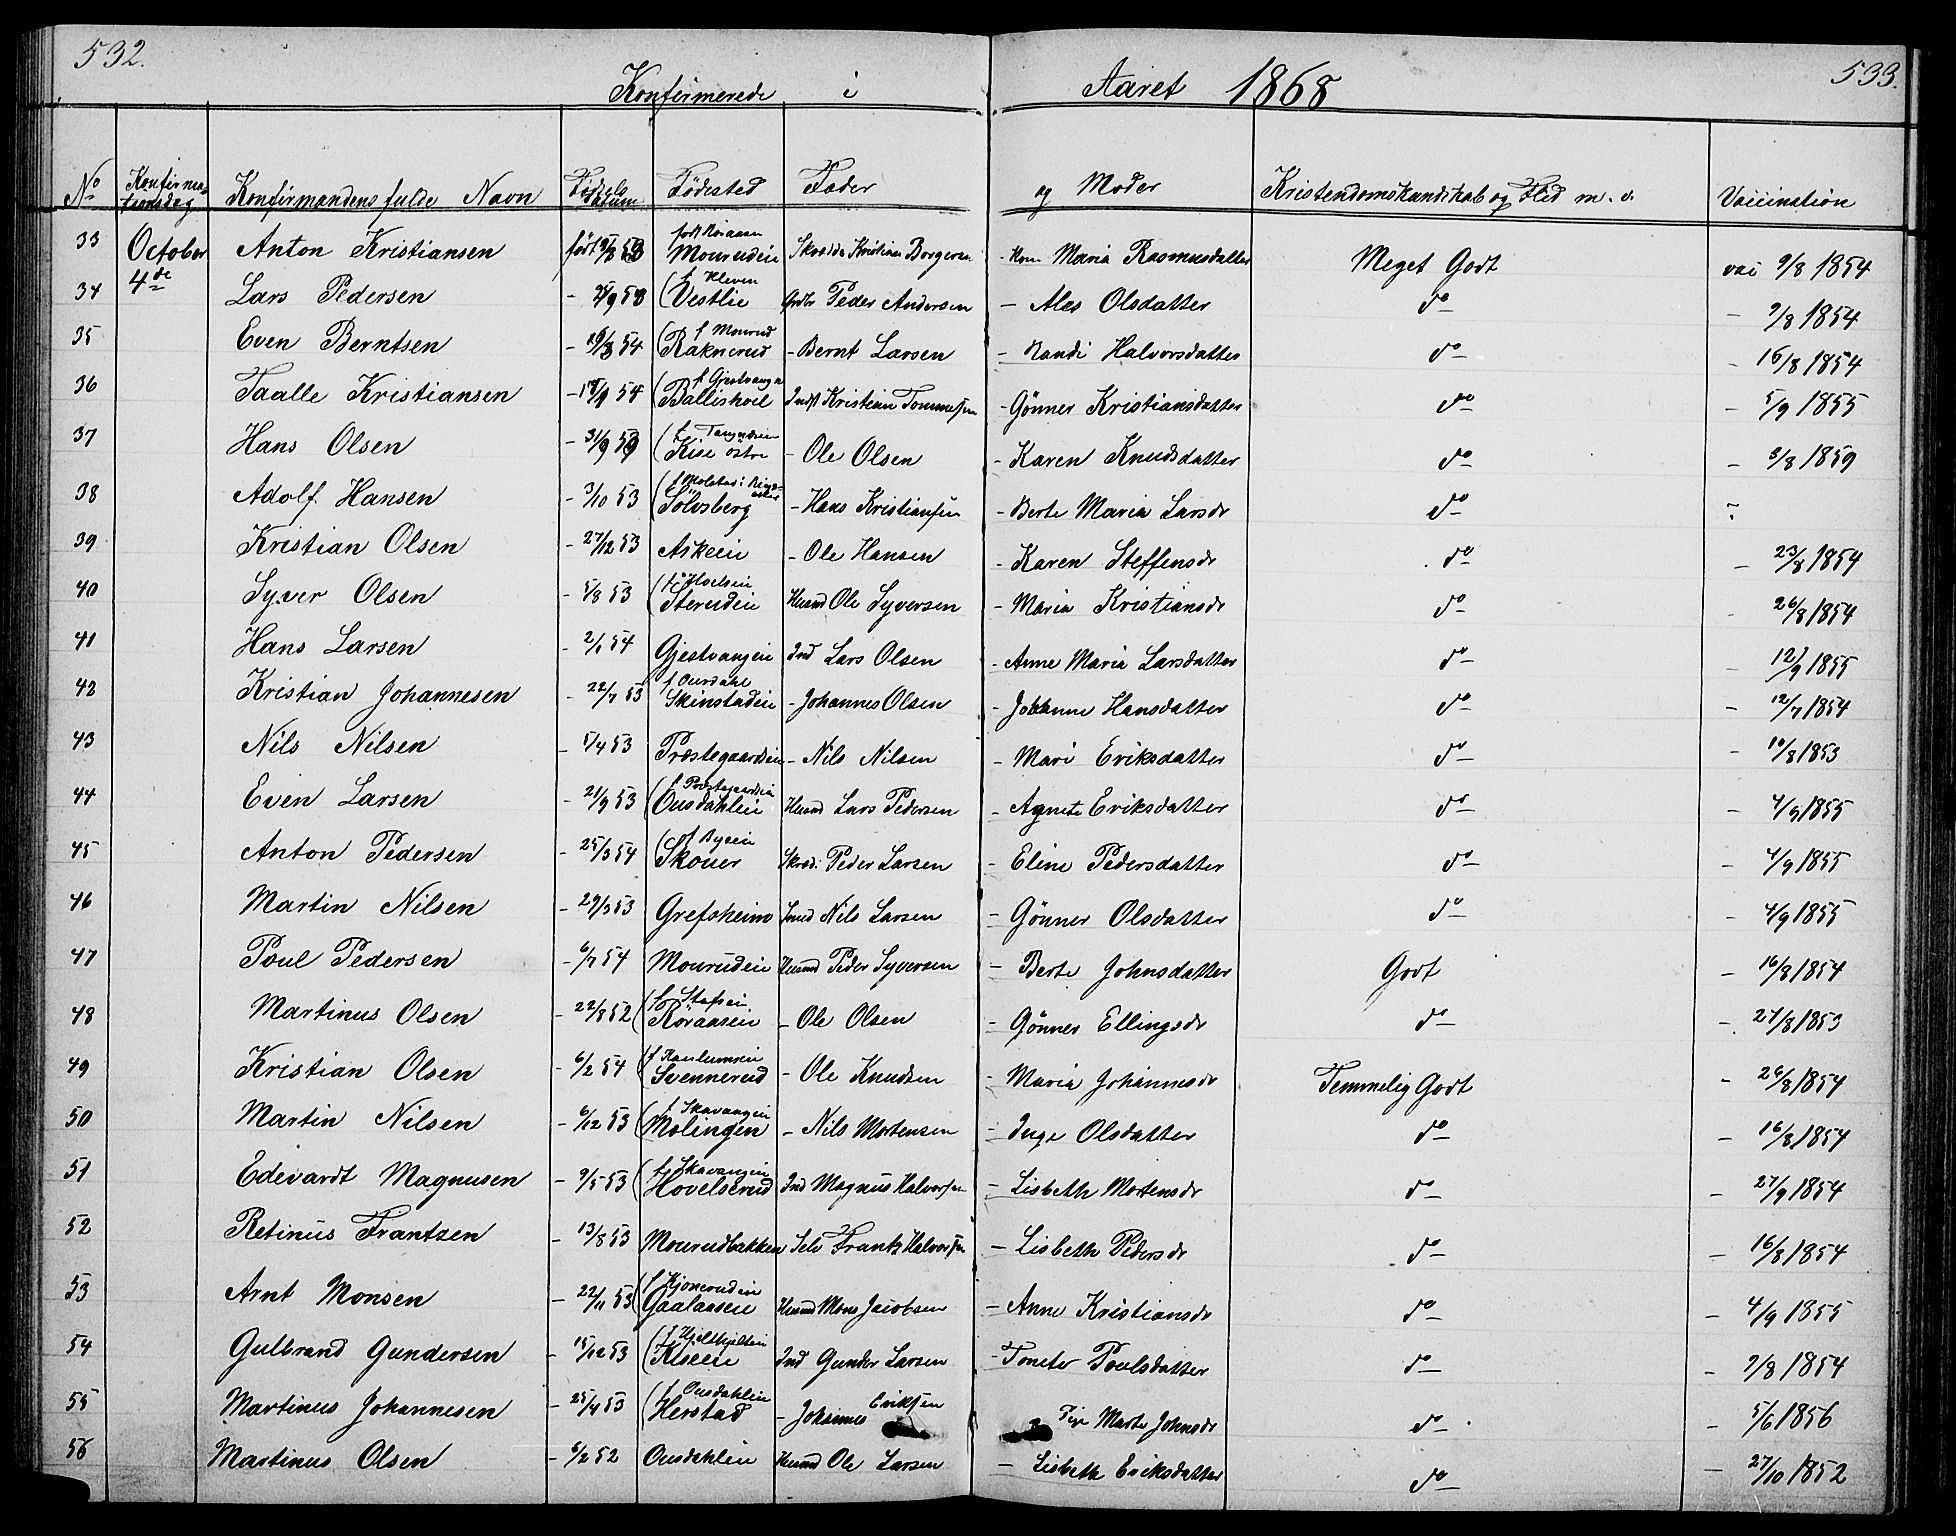 532. 533.
Konfirmerede i Aaret 1868
No Konfirmationsdag Konfirmandens fulde Navn Fødselsdatum Fødested Fader og Moder Kristendomskundskab og Flid m. v. Vaccination
33 October 4de Anton Kristiansen født Mourudeie Kristian Borgersen Kone Maria Rasmusdatter Meget Godt vac 9/8 1854
34 Lars Pedersen - (f Kleven Vestlie Peder Andersen - Olsdatter do - 9/8 1854
35 Even Berntsen - (f Mourud Raknerud - Bernt Larsen - Randi Halvorsdatter do - 16/8 1854
36 Taalle Kristiansen - (f Gjestvang Ballishoil Indst Kristian Tommesen - Gønner Kristiansdatter do - 5/9 1855
37 Hans Olsen - (f Kise østre - Ole Olsen - Karen Knudsdatter do - 3/8 1859
38 Adolf Hansen - 3/10 53 (f Molstad i Ringsaker Solvsberg - Hans Kristiansen - Berte Maria Larsdr do -
39 Kristian Olsen - 27/12 53 Askeeie - Ole Hansen - Karen Steffensdr do - 23/8 1854
40 Syver Olsen - 5/8 53 (f Hoelseie Sterudeie Husmd Ole Syversen - Maria Kristiansdr do - 26/8 1854
41 Hans Larsen - 2/1 54 Gjestvangeie Ind Lars Olsen - Anne Maria Larsdatter do - 12/9 1855
42 Kristian Johannesen - 22/7 53 f Ousdahl Skinstadeie - Johannes Olsen - Johanne Hansdatter do - 12/7 1854
43 Nils Nilsen - 5/4 53 Præstegaardseie - Nils Nilsen - Mari Eriksdatter do - 10/8 1853
44 Even Larsen - 21/9 53 (f Præstegaardseie Ousdahleie Husmd Lars Pedersen - Agnete Eriksdatter do - 4/9 1855
45 Anton Pedersen - 25/3 54 (f Byeeie Skouer Skræd. Peder Larsen - Eline Pedersdatter do - 4/9 1855
46 Martin Nilsen - 29/3 53 Grefsheim Smed Nils Larsen - Gønner Olsdatter do - 4/9 1855
47 Poul Pedersen - 6/7 54 Mourudeie Husmd Peder Syversen - Berte Johnsdatter Godt - 16/8 1854
48 Martinus Olsen - 22/8 52 (f Stafseie Røraaseie - Ole Olsen - Gønner Ellingsdr do - 27/8 1853
49 Kristian Olsen - 6/2 54 (f Kaulumseie Svennerud - Ole Knudsen - Maria Johannesdr Temmelig Godt - 26/8 1854
50 Martin Nilsen - 6/12 53 (f Skavangeie Molingen - Nils Mortensen - Inge Olsdatter do - 16/8 1854
51 Edevardt Magnusen - 9/5 53 (f Skavangeie Hovelserud Ind Magnus Halvorsen - Lisbeth Mortensdr do - 27/9 1854
52 Retinus Frantzen - 13/8 53 Mourudbakken Selv Frantz Halvorsen - Lisbeth Pedersdr do - 16/8 1854
53 Arnt Monsen - 22/11 53 (f Kjonerudeie Gaalaaseie Husmd Mons Jacobsen - Anne Kristiansdr do - 4/9 1855
54 Gulbrand Gundersen - 15/12 53 (f Ind Gunder Larsen - Tonete Poulsdatter do - 9/8 1854
55 Martinus Johannesen - 25/4 53 (f Ousdahleie Herstad - Johannes Eriksen Pige Marte Johnsdr do - 5/6 1856
56 Martinus Olsen - 6/2 52 Ousdahleie Husmd Ole Larsen - Lisbeth Eriksdatter do - 27/10 1852